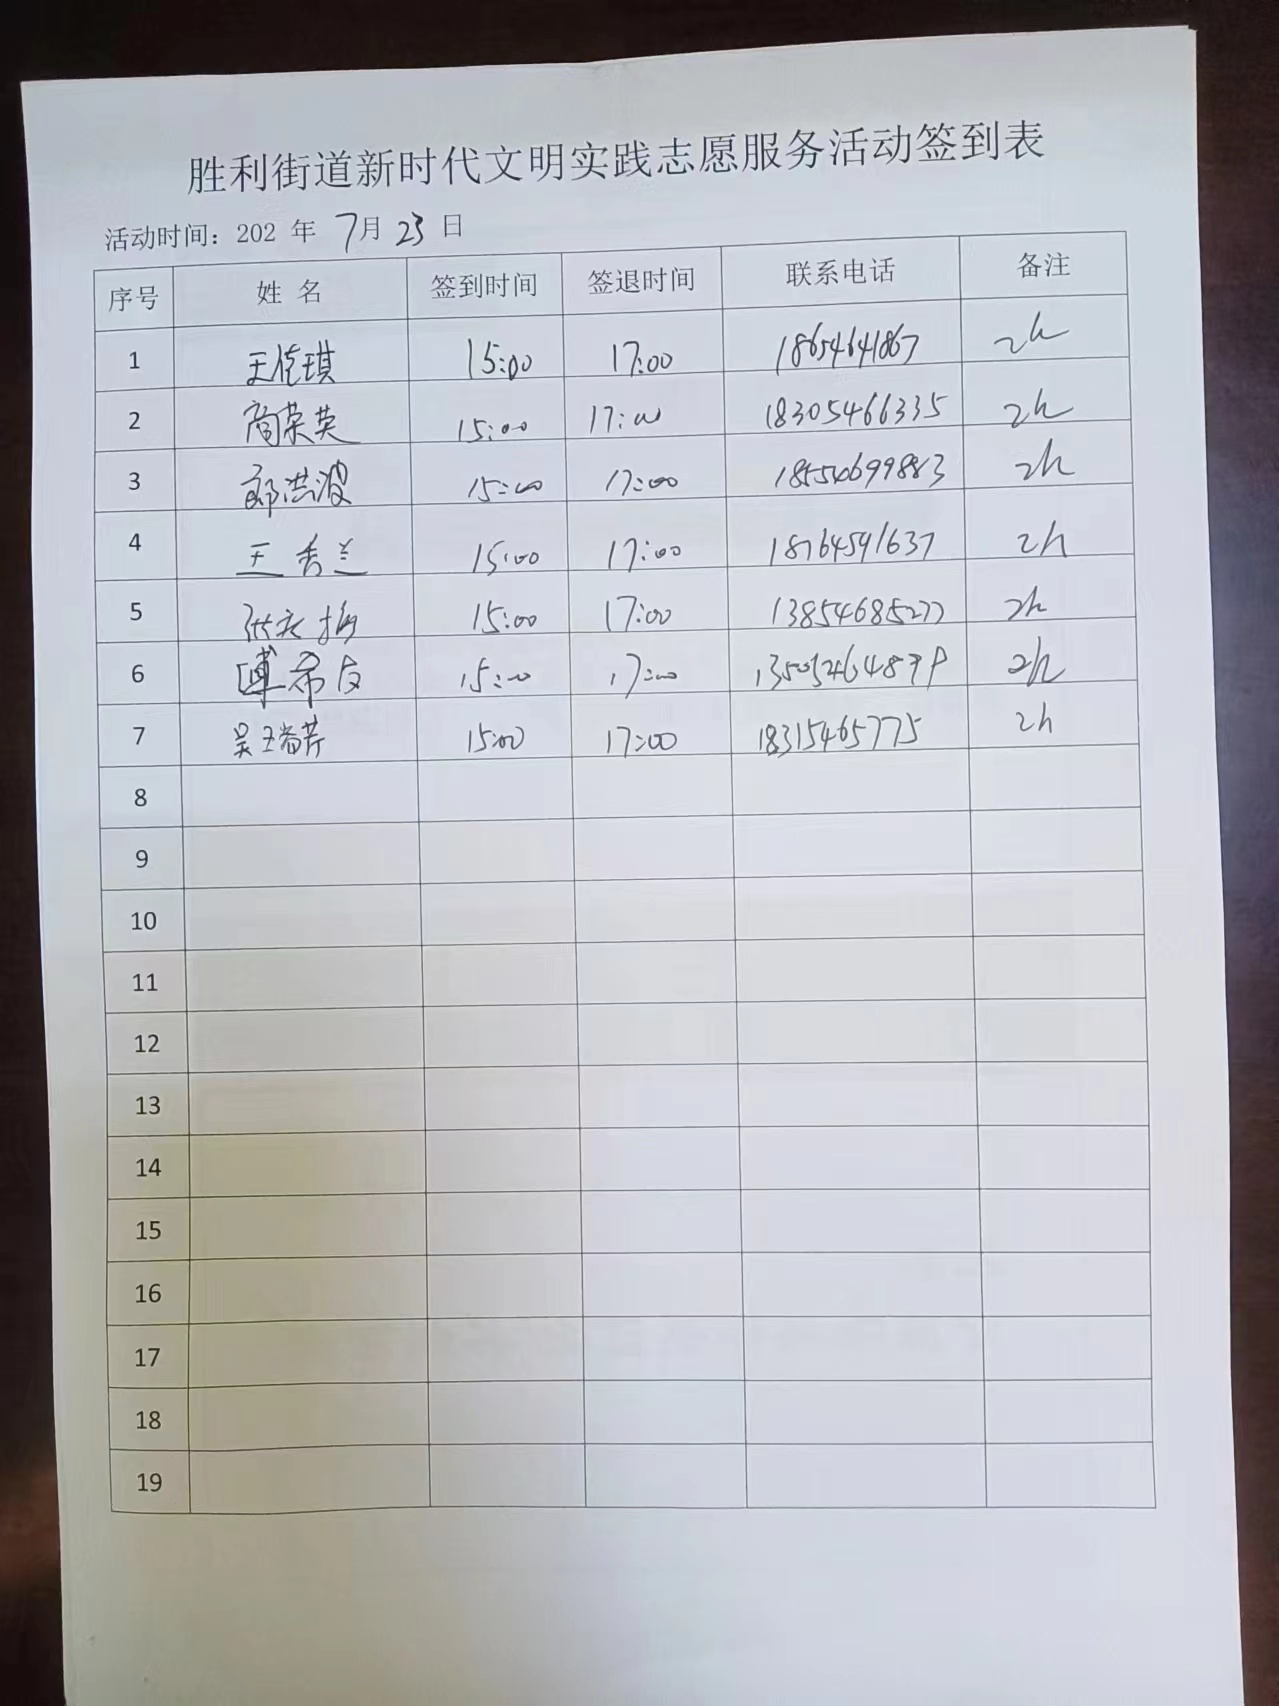 胜利街道新时代文明实践志愿服务活动签到表
活动时间：202 年 7月 23 日
序号 姓 名 签到时间 签退时间 联系电话 备注
1 王佳琪 15:00 17:00 18654641867 2h
2 商荣英 15:00 17:00 18305466335 2h
3 郭洪波 15:00 17:00 18554699883 2h
4 王秀兰 15:00 17:00 18764591637 2h
5 15:00 17:00 13854685277 2h
6 傅希友 15:00 17:00 2h
7 吴玉瑞芹 15:00 17:00 18315465775 2h
8
9
10
11
12
13
14
15
16
17
18
19